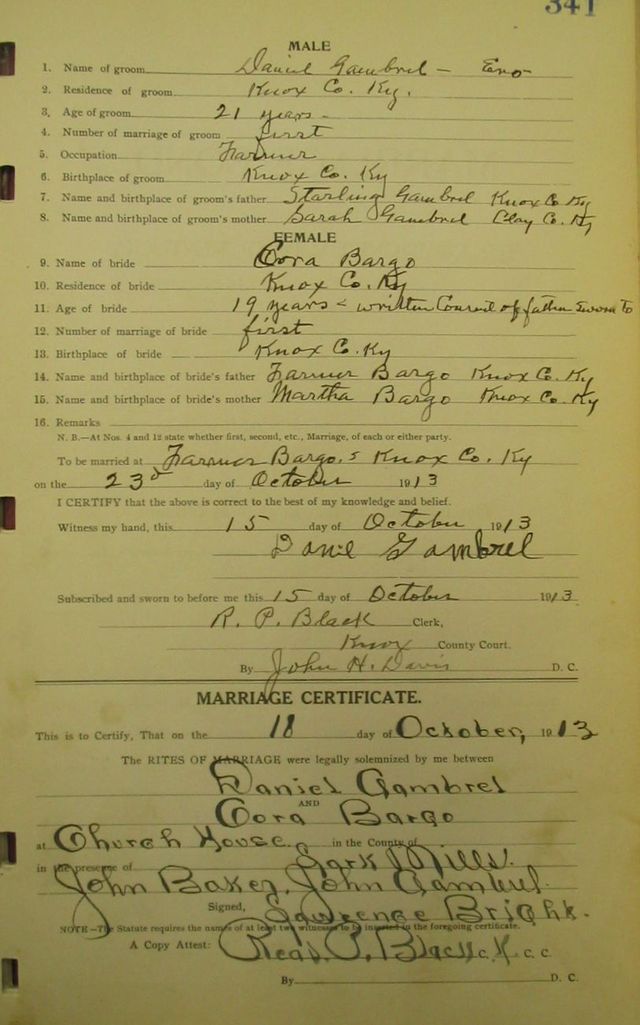 341
MALE
1. Name of groom Daniel Gambrel - Eno
2. Residence of groom Knox Co. Ky.
3. Age of groom 21 years -
4. Number of marriage of groom first
5. Occupation Farmer
6. Birthplace of groom Knox Co. Ky
7. Name and birthplace of groom's father Starling Gambrel Knox Co. Ky
8. Name and birthplace of groom's mother Sarah Gambrel Clay Co. Ky
FEMALE
9. Name of bride Cora Bargo
10. Residence of bride Knox Co. Ky
11. Age of bride 19 years - written Consent of father Sworn to
12. Number of marriage of bride first
13. Birthplace of bride Knox Co. Ky
14. Name and birthplace of bride's father Farmer Bargo Knox Co. Ky
15. Name and birthplace of bride's mother Martha Bargo Knox Co. Ky
16. Remarks
N. B.—At Nos. 4 and 12 state whether first, second, etc., Marriage, of each or either party.
To be married at Farmer Bargo, s Knox Co. Ky
on the 23d day of October 1913
I CERTIFY that the above is correct to the best of my knowledge and belief.
Witness my hand, this 15 day of October 1913
Danie Gambrel
Subscribed and sworn to before me this 15 day of October 1913
R. P. Black Clerk,
Knox County Court.
By John H. Davis D. C.
MARRIAGE CERTIFICATE.
This is to Certify, That on the 18 day of October, 1913
The RITES OF MARRIAGE were legally solemnized by me between
Daniel Gambrel
AND
Cora Bargo
at Church House. in the County of
in the presence of Mills.
John Baker, John Gambrel.
Signed, Lawrence Bright.
NOTE—The Statute requires the names of at least two witnesses to be inserted in the foregoing certificate.
A Copy Attest: Read P. Black C. K. C. C.
By D. C.